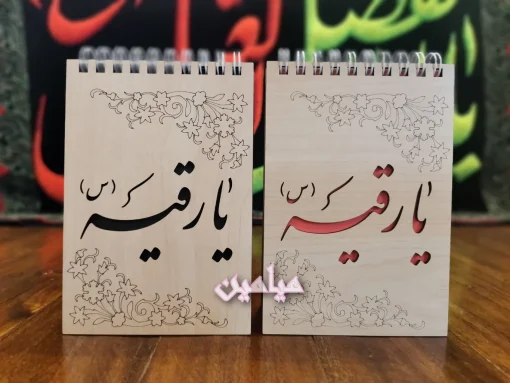 یا رقیه (س)
یا رقیه (س)
میامین